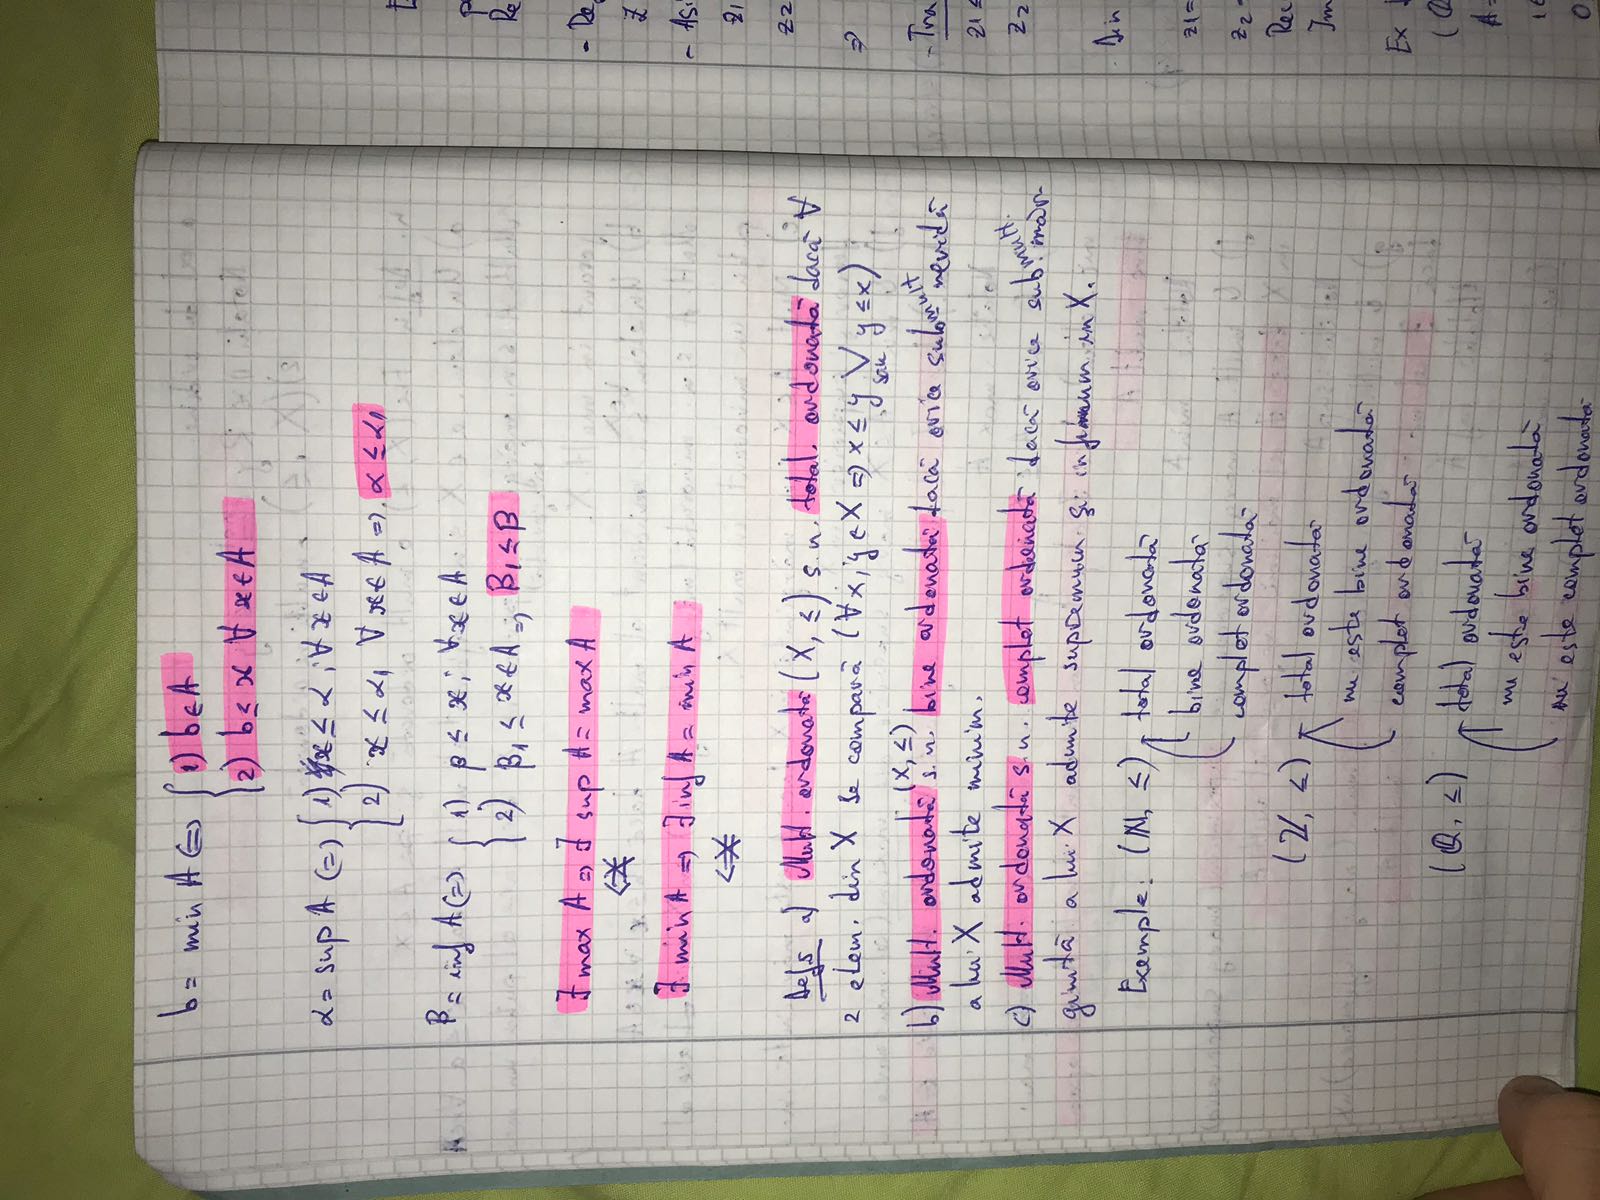 b = min A (=) { 1) b∈A
2) b ≤ x ∀ x∈A
α = sup A (=) { 1) x ≤ α ; ∀ x∈A
2) x ≤ α₁ ∀ x∈A =) α ≤ α₁
β = inf A (=) { 1) β ≤ x ; ∀ x∈A
2) β₁ ≤ x∈A =) β₁ ≤ β
∃ max A =) ∃ sup A = max A
∃ min A =) ∃ inf A = min A
Def 5 a) Mult. ordonată (X, ≤) s.n. total. ordonată dacă ∀
2 elem. din X se compară (∀ x, y ∈ X =) x ≤ y ∨ sau y ≤ x)
b) Mult. ordonată (X, ≤) s.n. bine ordonată dacă orice submult nevidă
a lui X admite minim.
c) Mult. ordonată s.n. complet ordonată dacă orice submult. măr-
ginită a lui X admite supremum și infimum in X.
Exemple: (ℕ, ≤) total ordonată
bine ordonată
complet ordonată
(ℤ, ≤) total ordonată
nu este bine ordonată
complet ordonată
(ℚ, ≤) total ordonată
nu este bine ordonată
nu este complet ordonată
- Tra
z1 ≤
z2
Din
z1 =
Ex